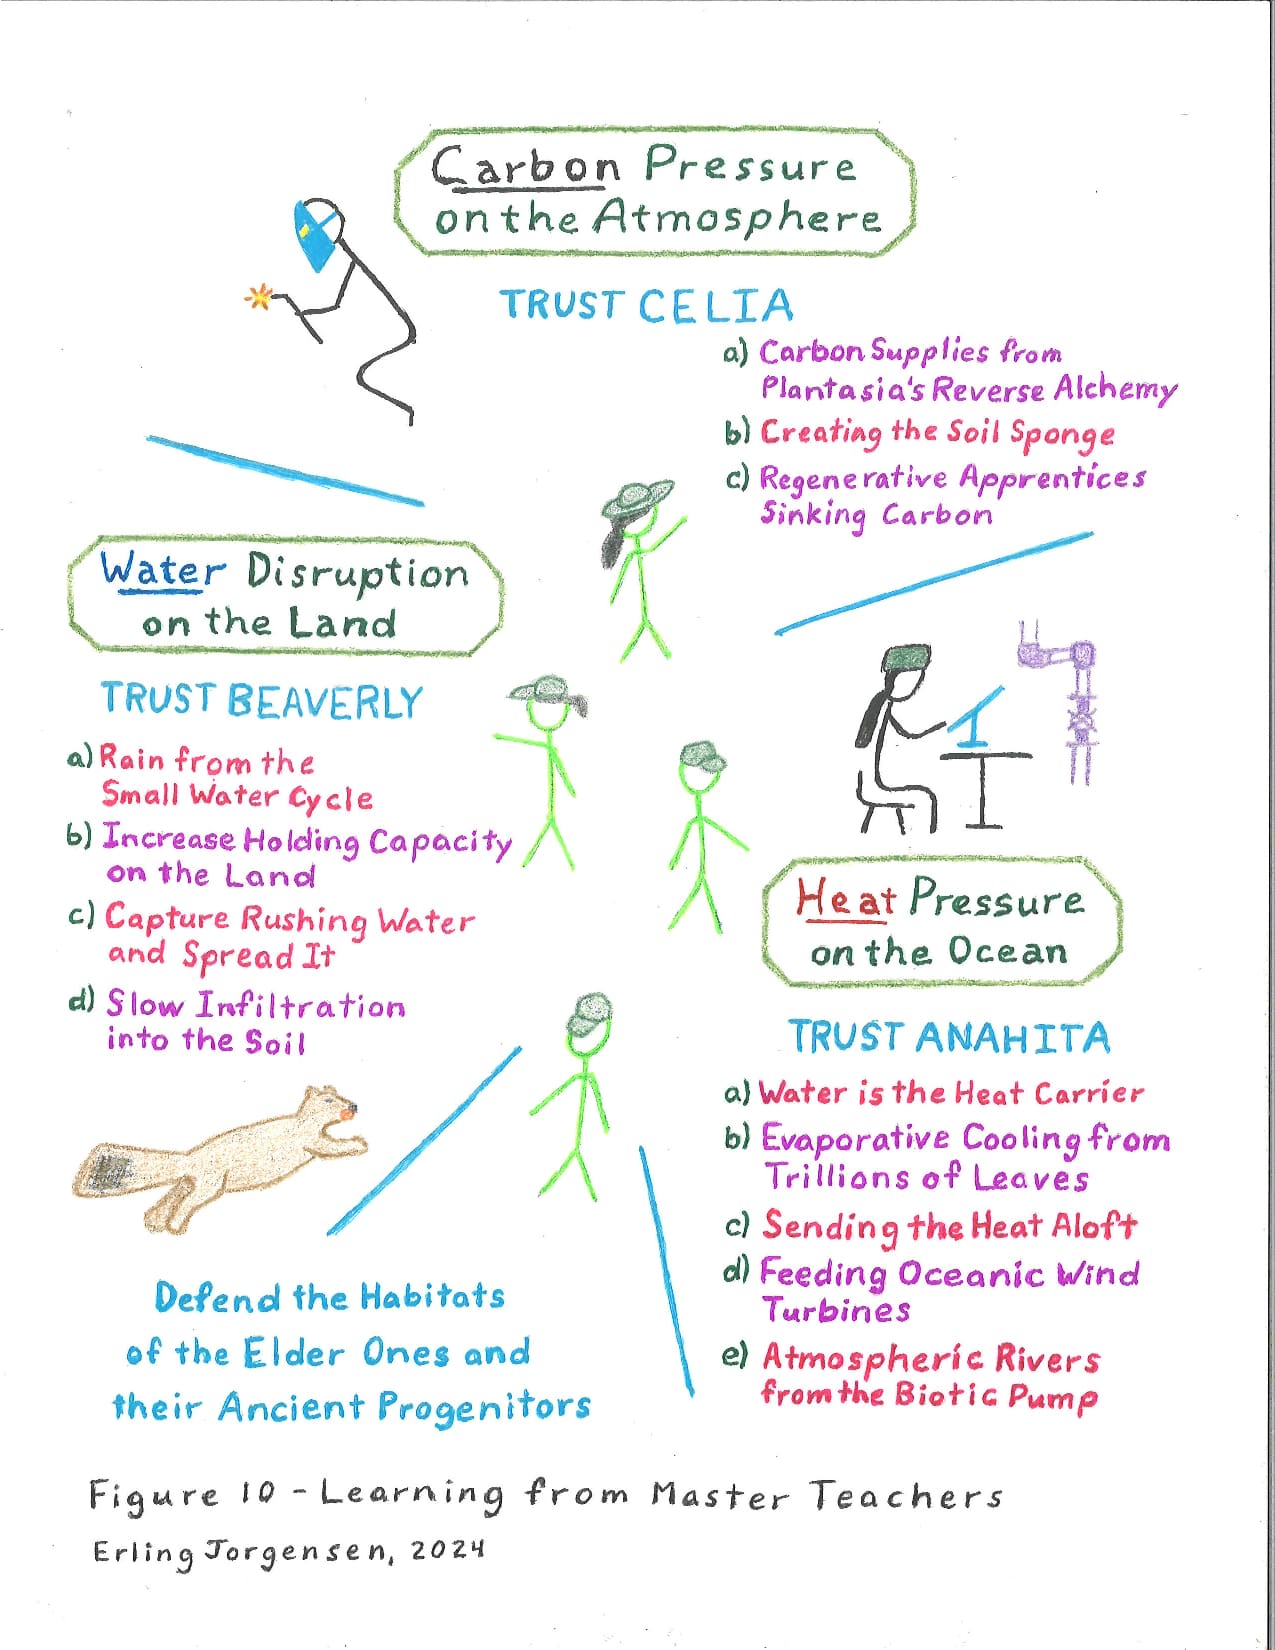 Carbon Pressure
on the Atmosphere
TRUST CELIA
a) Carbon Supplies from
Plantasia's Reverse Alchemy
b) Creating the Soil Sponge
c) Regenerative Apprentices
Sinking Carbon
Water Disruption
on the Land
TRUST BEAVERLY
a) Rain from the
Small Water Cycle
b) Increase Holding Capacity
on the Land
c) Capture Rushing Water
and Spread It
d) Slow Infiltration
into the Soil
Heat Pressure
on the Ocean
TRUST ANAHITA
a) Water is the Heat Carrier
b) Evaporative Cooling from
Trillions of Leaves
c) Sending the Heat Aloft
d) Feeding Oceanic Wind
Turbines
e) Atmospheric Rivers
from the Biotic Pump
Defend the Habitats
of the Elder Ones and
their Ancient Progenitors
Figure 10 - Learning from Master Teachers
Erling Jorgensen, 2024